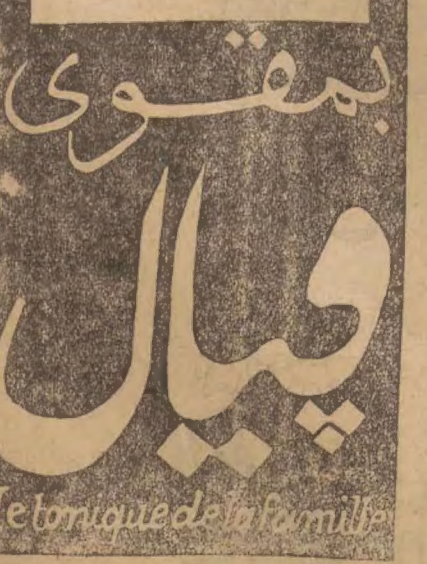 بمقوى
ڥيال
Le tonique de la famille